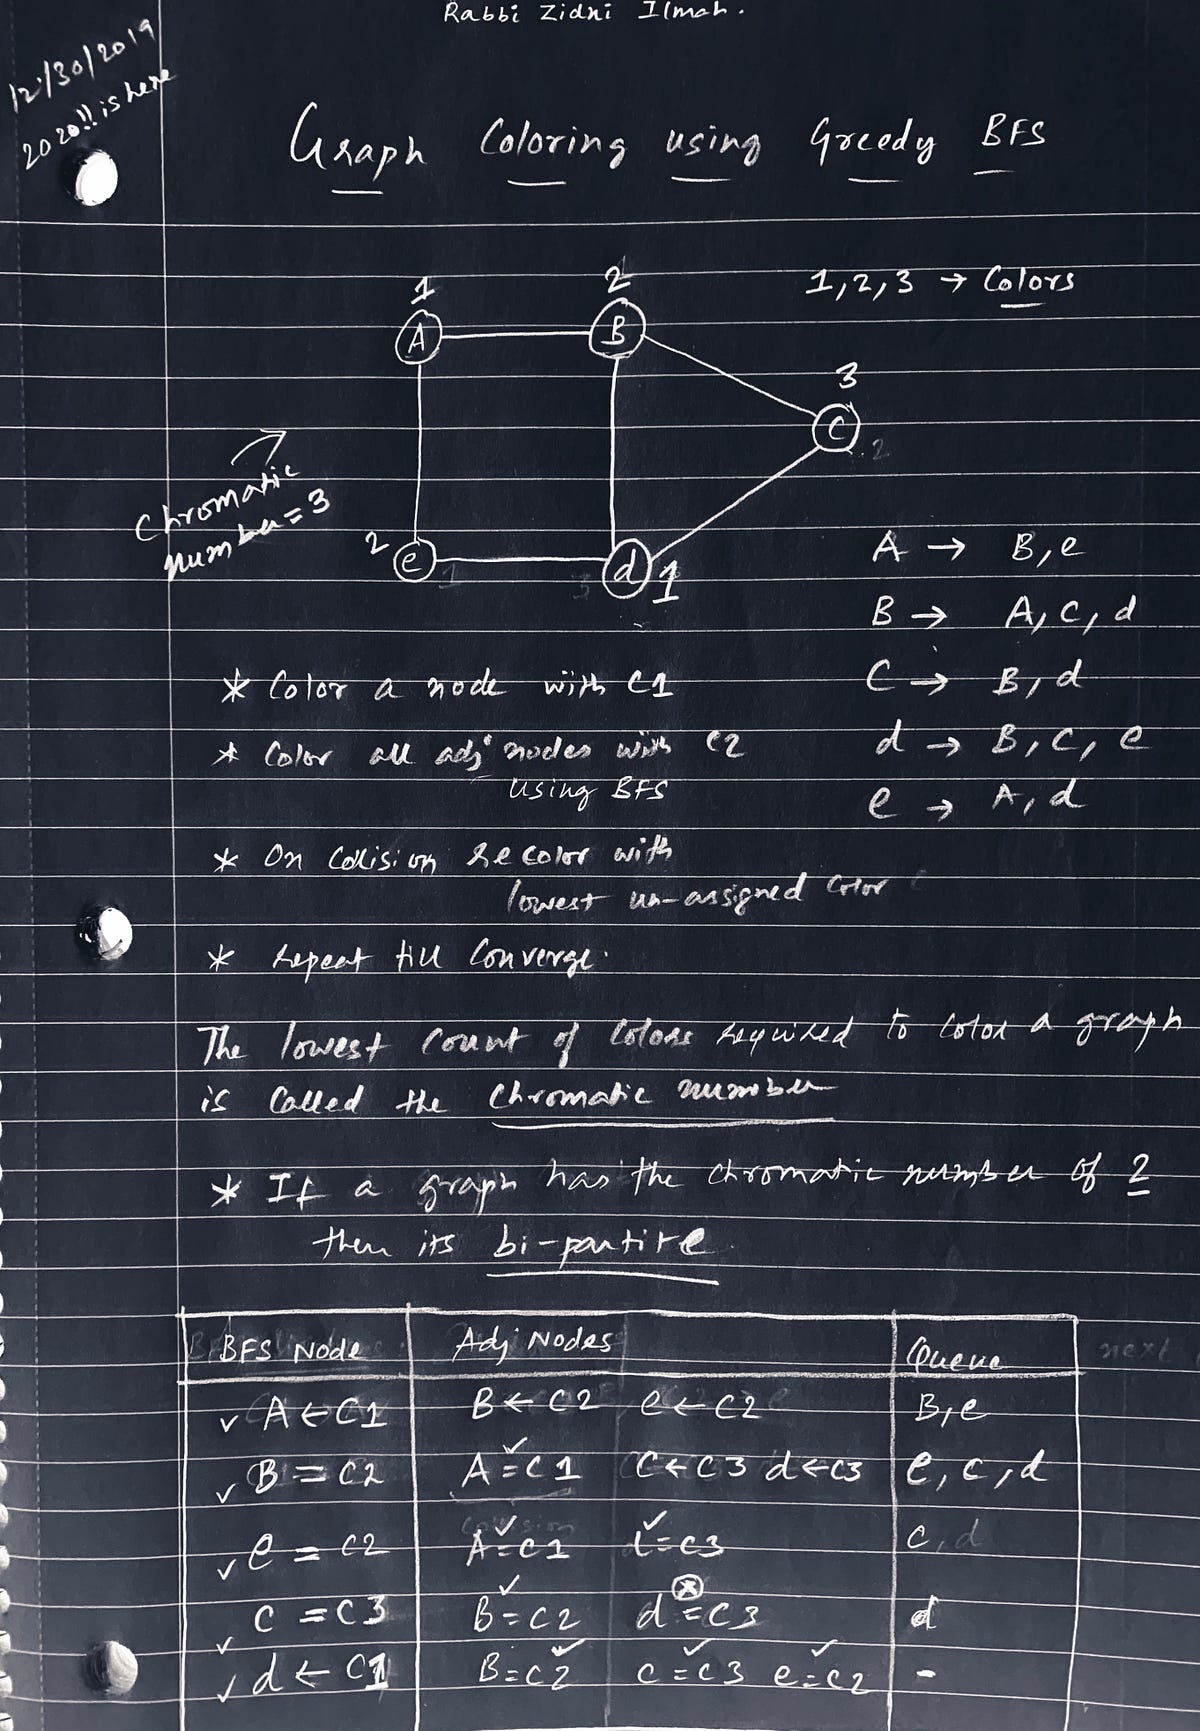 Rabbi Zidni Ilmah.
12/30/2019
2020!! is here
Graph Coloring using Greedy BFS
1,2,3 → Colors
1
2
A
B
3
C
2
Chromatic
number = 3
2
e
1
3
d
1
A → B, e
B → A, C, d
C → B, d
d → B, C, e
e → A, d
* Color a node with C1
* Color all adj nodes with C2
using BFS
* On Collision recolor with
lowest un-assigned Color
* repeat till Converge.
The lowest count of Colors required to color a graph
is Called the Chromatic number
* If a graph has the chromatic number of 2
then its bi-partite
BFS Node Adj Nodes Queue next
✓ A ← C1 B ← C2 e ← C2 B, e
✓ B = C2 A = C1 ✓ C ← C3 d ← C3 e, c, d
✓ e = C2 A = C1 ✓ d = C3 ✓ c, d
✓ C = C3 B = C2 ✓ d = C3 ⊗ d
✓ d ← C1 B = C2 ✓ C = C3 ✓ e = C2 ✓ -